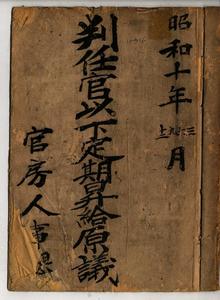 昭和十年 三、六、九、十二 月
判任官以下定期昇給原議
官房人事課